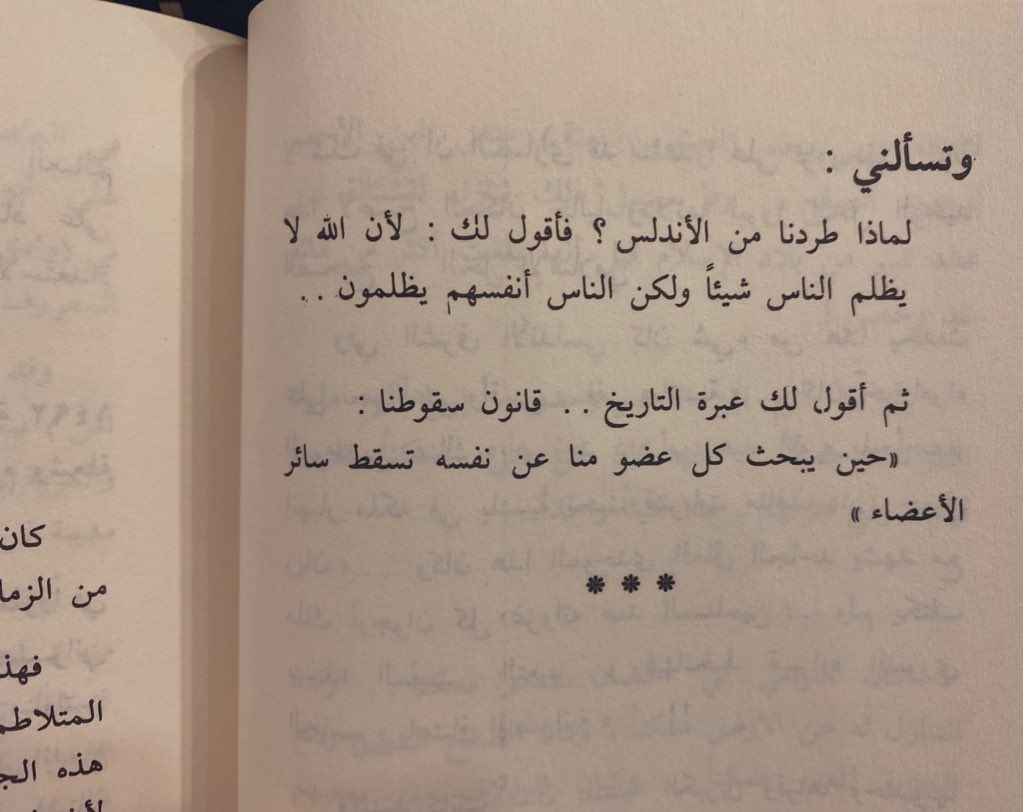 وتسألني :
لماذا طردنا من الأندلس ؟ فأقول لك : لأن الله لا
يظلم الناس شيئاً ولكن الناس أنفسهم يظلمون . .
ثم أقول لك عبرة التاريخ . . قانون سقوطنا :
«حين يبحث كل عضو منا عن نفسه تسقط سائر
الأعضاء »
* * *
كان
من الزما
فهذ
المتلاطم
هذه الج